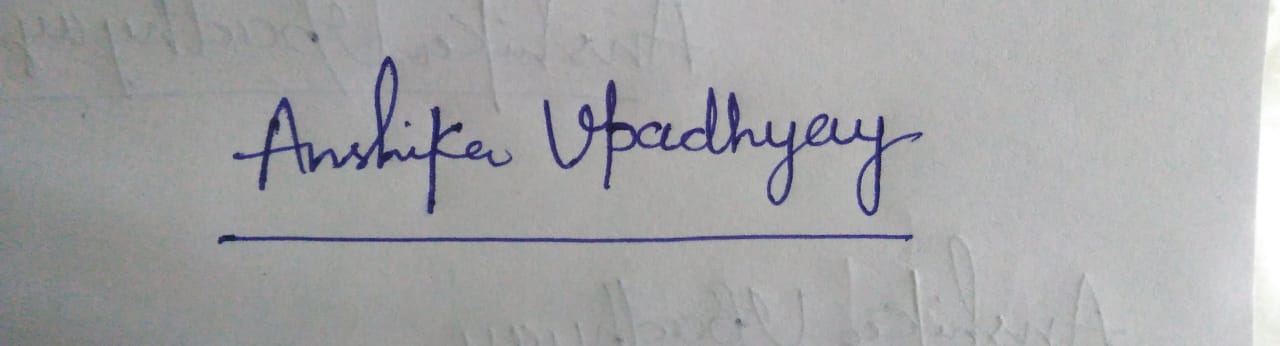 Anshika Upadhyay